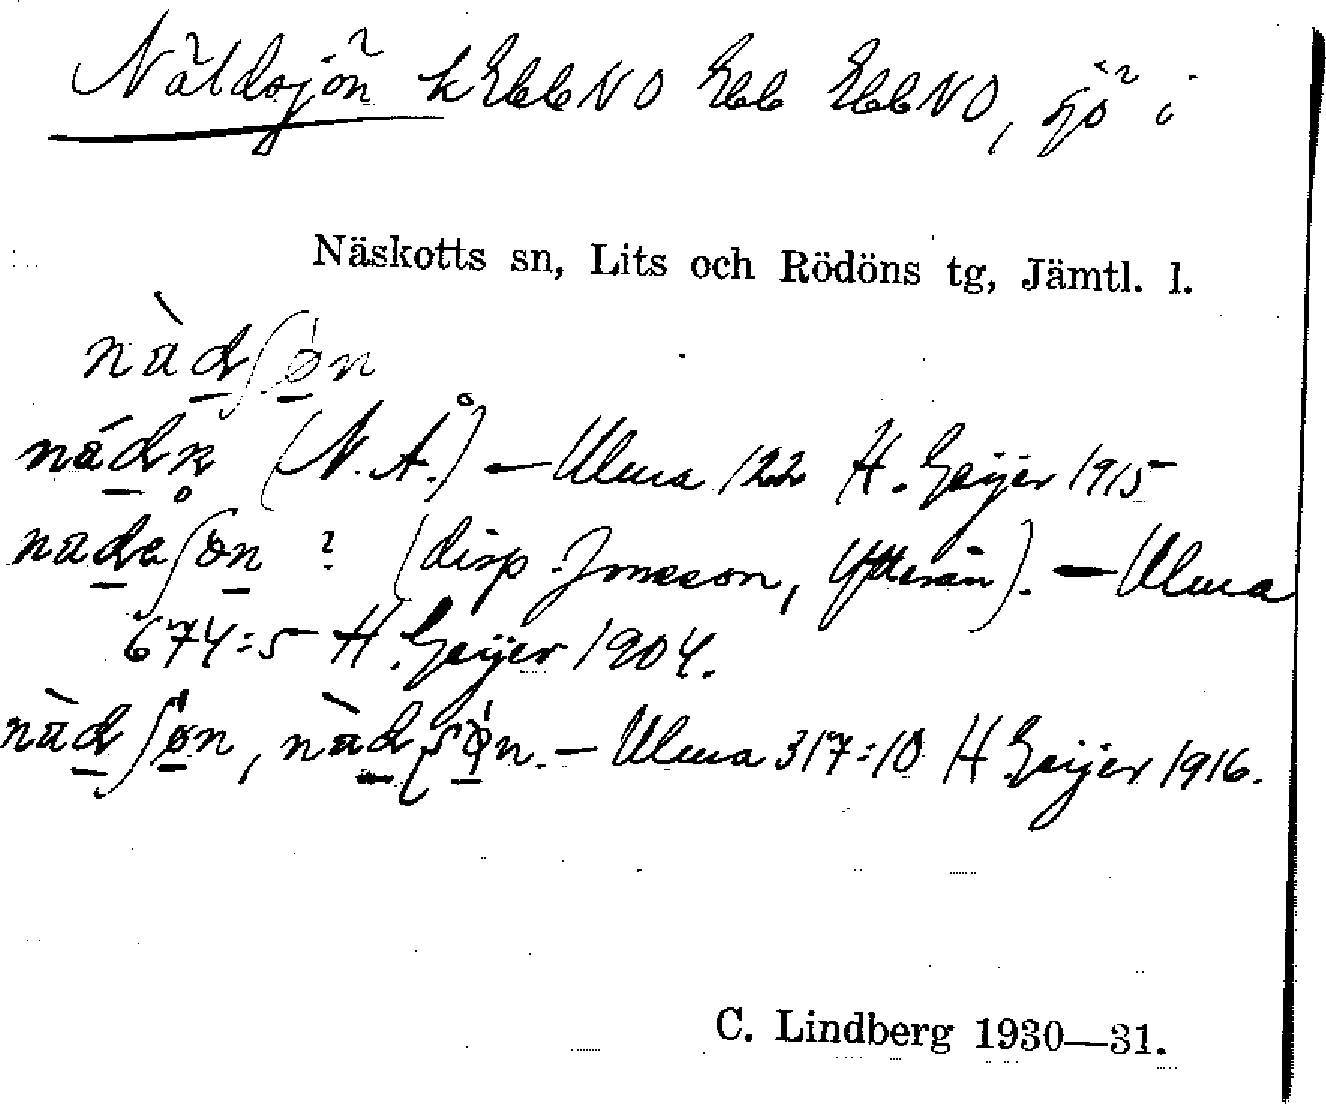 Näldsjön k EbbNO Ebb EbbNO, sjö i
Näskotts sn, Lits och Rödöns tg, Jämtl. l.
nàdʃøn
nádn̥ (N.Å.) — Ulma 122 H. Geijer 1915
nadaʃøn ? (disp Jonsson, Ytterån). — Ulma
674:5 H. Geijer 1904.
nàdʃøn, nàdʃøn. — Ulma 317:10 H Geijer 1916.
C. Lindberg 1930—31.